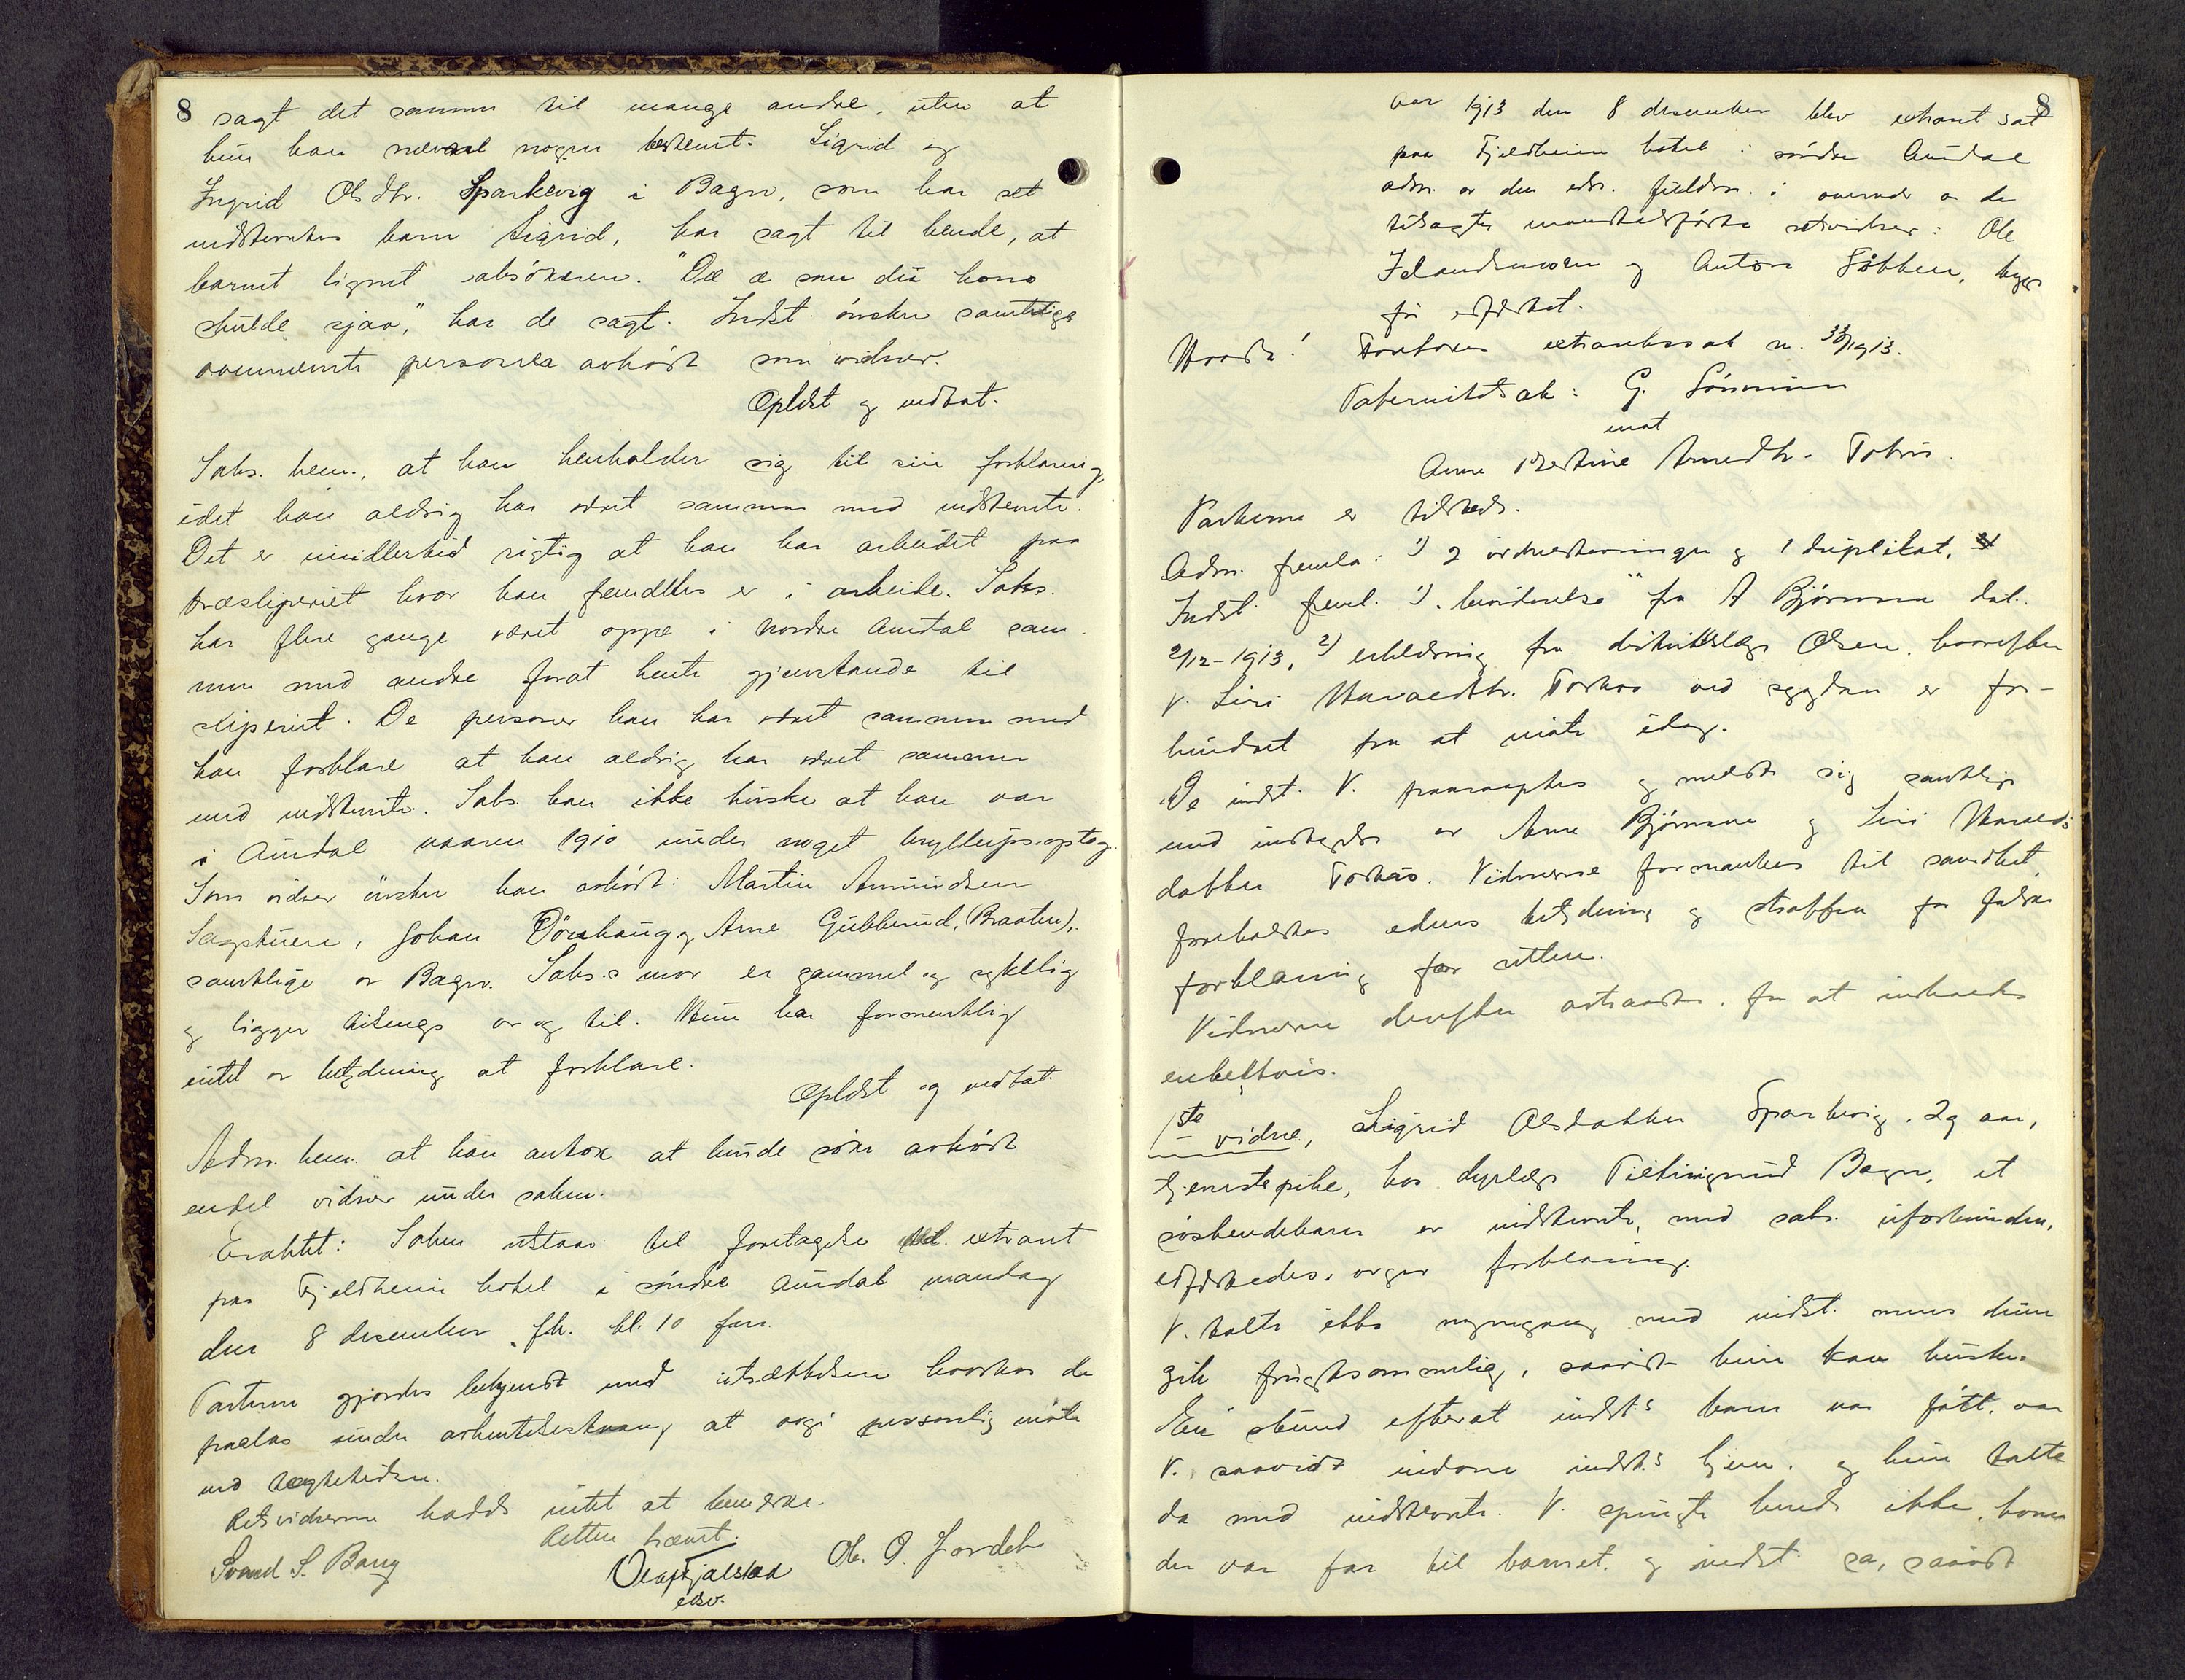 8 sagt det samme til mange andre, uten at
hun har nævnt nogen bestemt. Sigrid og
Ingrid Olsdtr. Sparkevig i Bagn, som har set
indstevntes barn Sigrid, har sagt til hende, at
barnet lignet saksökeren. "De æ som du hono
skulde sjaa," har de sagt. Indst. önsker samtlige
ovennevnte personer avhört som vidner.
Oplest og vedtat.
Saks. bem., at han henholder sig til sin forklaring,
idet han aldrig har været sammen med indstevnte.
Det er imidlertid rigtig at han har arbeidet paa
træsliperiet hvor han fremdeles er i arbeide. Saks.
har flere gange været oppe i nordre Aurdal sam-
men med andre forat hente gjenstande til
sliperiet. De personer han har været sammen med
kan forklare at han aldrig har været sammen
med indstevnte. Saks. kan ikke huske at han var
i Aurdal vaaren 1910 under noget bryllupsoptog.
Som vidner önsker han avhört: Martin Amundsen
Sagstuen, Johan Dörahaug og Arne Gubberud, (Braaten),
samtlige av Bagn. Saks.s mor er gammel og sykelig
og ligger tilsengs av og til. Hun har formentlig
intet av betydning at forklare.
Oplest og vedtat.
Adm. bem. at han antok at burde söke avhört
endel vidner under saken.
Eraktet: Saken utstaar til foretagelse ved extraret
paa Fjeldheim hotel i söndre Aurdal mandag
den 8 desember fk. kl. 10 fm.
Parterne gjordes bekjendt med utsættelsen hvorhos de
paalas under avhentelsestvang at avgi personlig möte
ved tægtetiden.
Retsvidnerne hadde intet at bemerke.
Retten hævet.
Svend S. Bang Olaf Fjalstad Ol. O. Jordet
edsv.
8
Aar 1913 den 8 desember blev extraret sat
paa Fjeldheim hotel i söndre Aurdal
adm. av den edsv. fuldm. i overvær av de
tilsagte mandtalsförte retsvidner: Ole
Islandsmoen og Anton Söbben, begge
för edfestet.
Hvorda! Foretokes extraretssak n. 33/1913.
Paternitetsak: G. Sörumm
mot
Anne Bertine Arnedtr. Tokus.
Parterne er tilstede.
Adm. fremla: 1) 2 vidnestevninger og 1 duplikat.
Indst. freml. 1) "bevidnelse" fra A Björnson dat.
2/12-1913, 2) erklæring fra distriktslæge Olsen, hvorefter
V. Siri Haraldsdtr. Torhus ved sygdom er for-
hindret fra at möte idag.
De indst. V. paaraaptes og meldte sig samtlige
med undtagelse av Arne Björnson og Siri Haralds-
datter Torhus. Vidnerne formantes til sandhet,
foreholdtes edens betydning og straffen for falsk
forklaring for retten.
Vidnerne derefter avtraadte, for at indkaldes
enkeltvis.
1ste vidne, Sigrid Olsdatter Sparkevig, 29 aar,
tjenestepike, hos dyrlæge Piltingsrud Bagn, et
söskendebarn av indstevnte, med saks. uforbunden,
edfestedes, avgav forklaring.
V. talte ikke nogengang med indst. mens denne
gik frugtsommelig, saavidt hun kan huske.
En stund efterat indst.s barn var fött, var
V. saavidt indom indst.s hjem, og hun talte
da med indstevnte. V. spurgte hende ikke, hvem
der var far til barnet, og indst. sa, saavidt